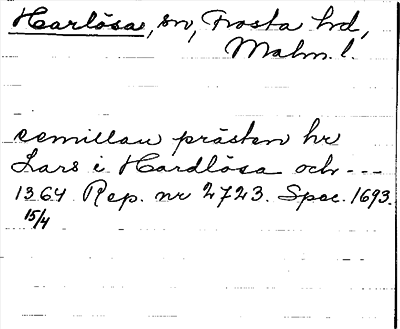 Harlösa, sn, Frosta hd,
Malm. l.
emillan prästen hr
Lars i Hardlösa och ---
1364 Rep. nr 2723. Spec. 1693.
15/4